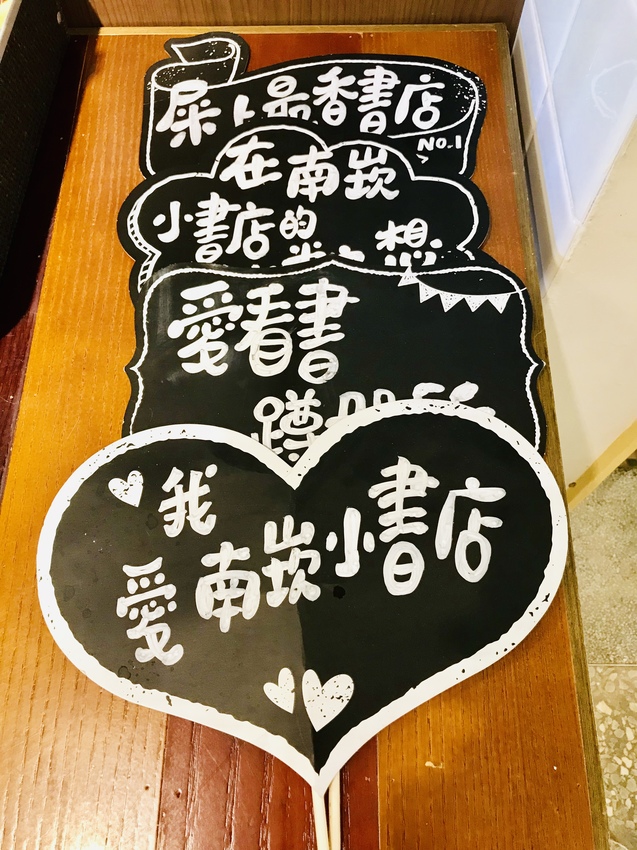 屎上最香書店
NO.1
在南崁
小書店的
想
愛看書
蹲
我
愛南崁小書店